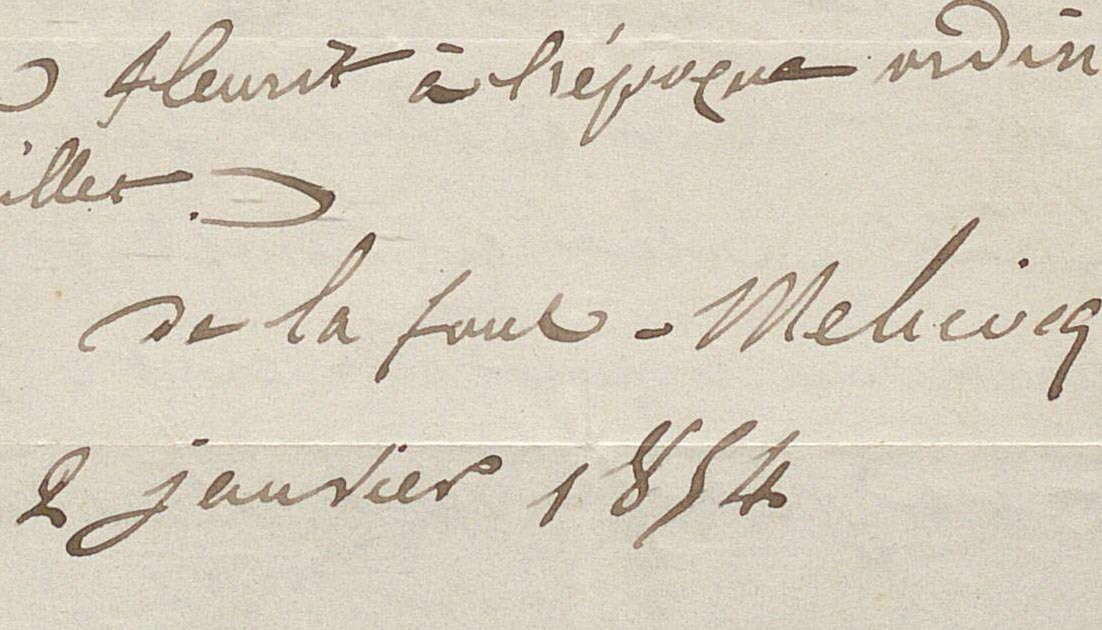 fleurit à l'époque ordin
illet.
de la fons - Melicocq
2 janvier 1854